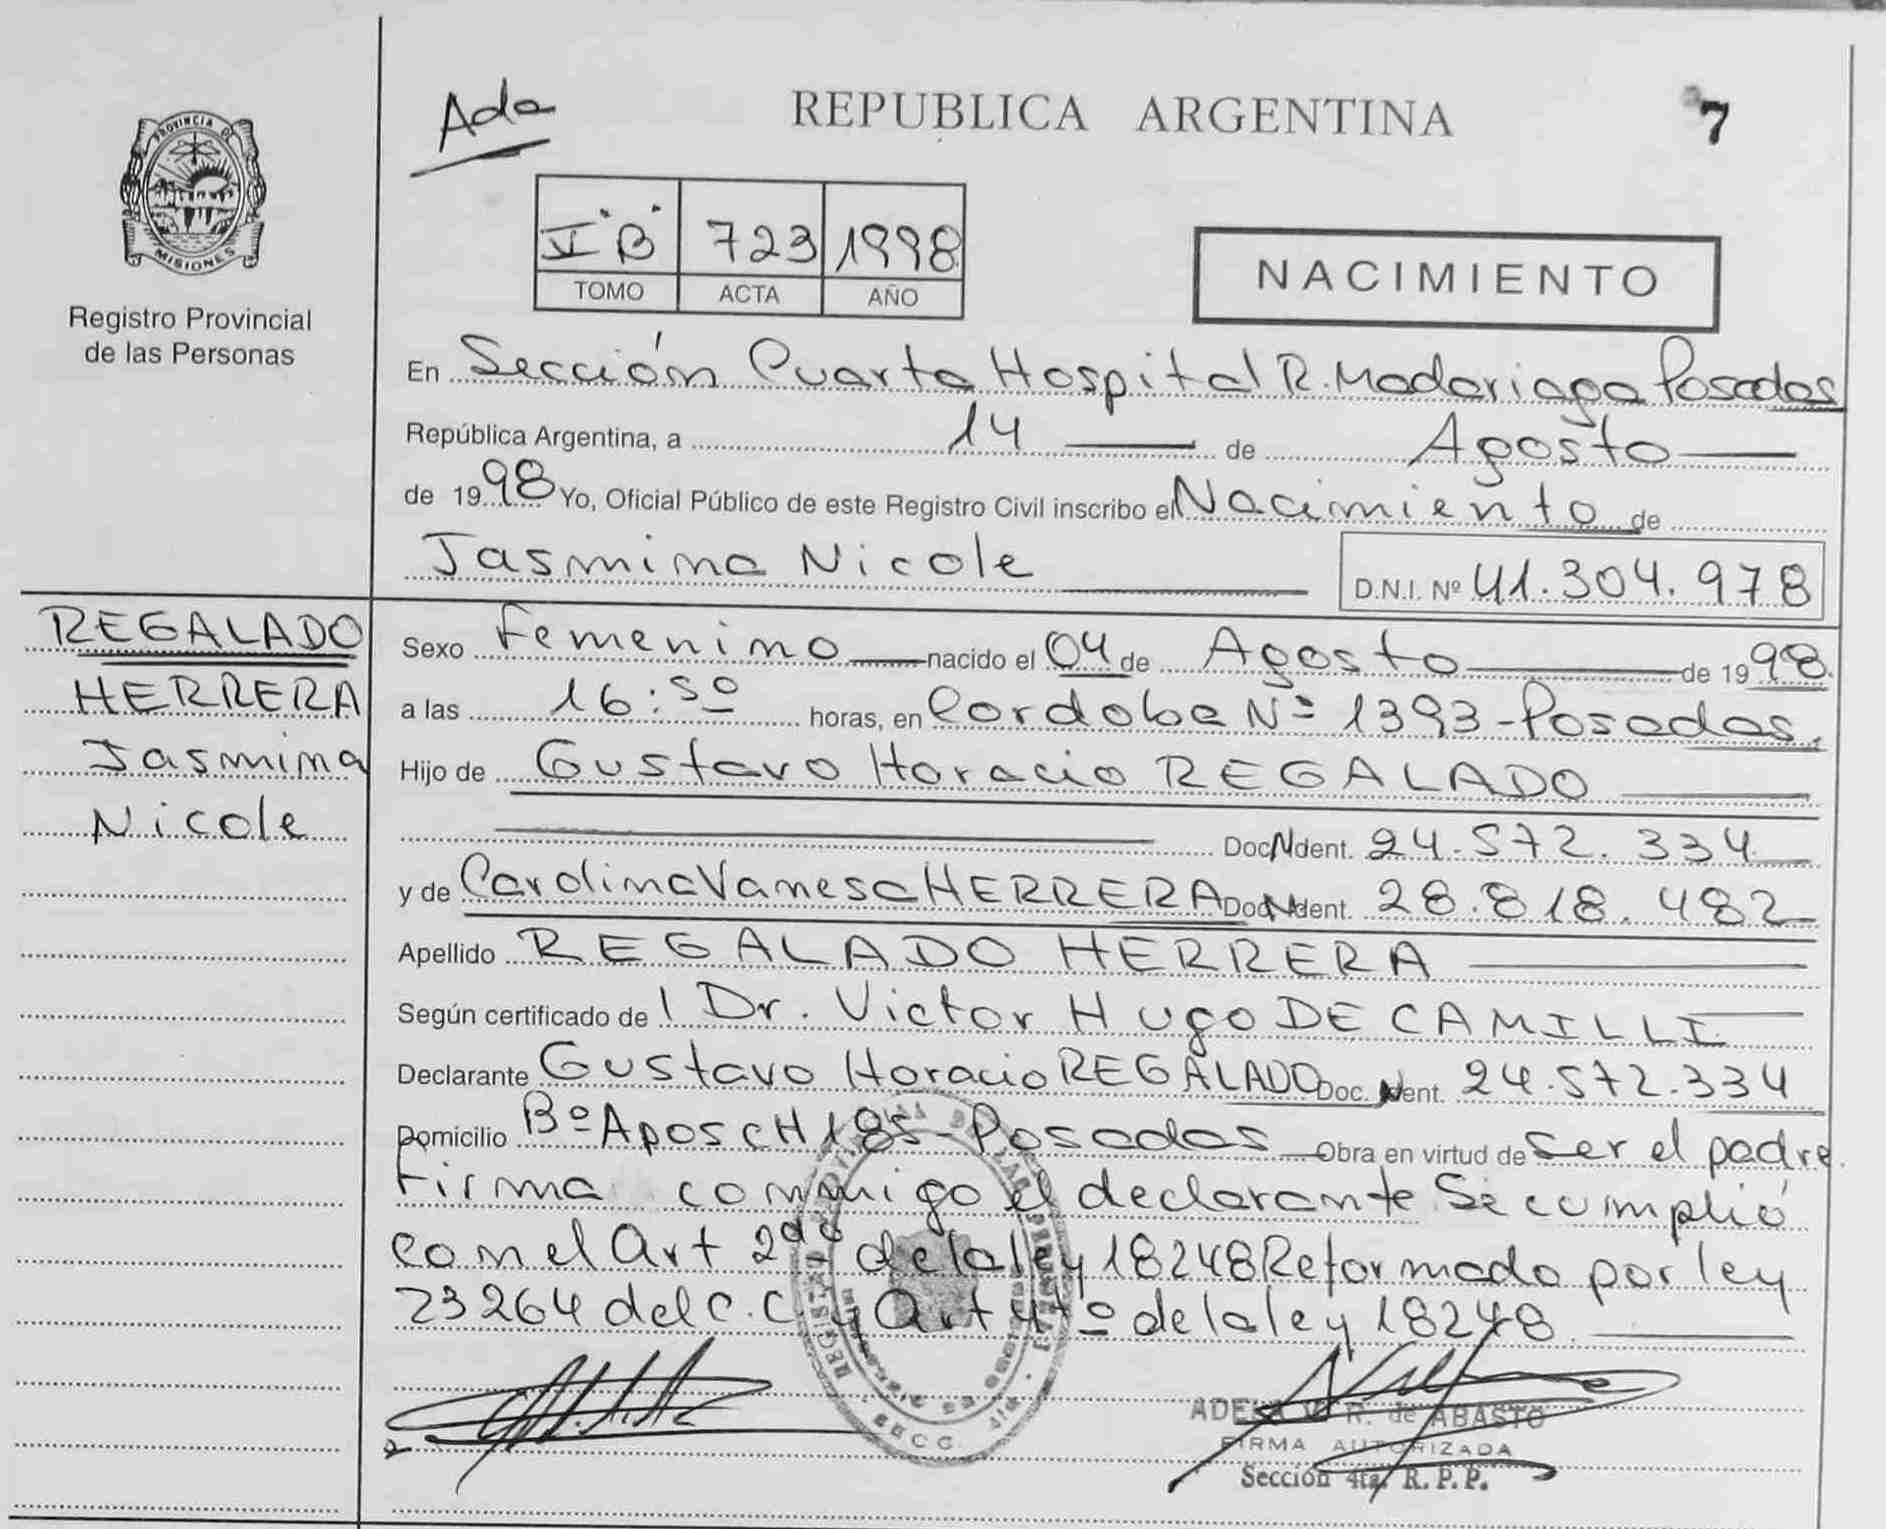 Ada
REPUBLICA ARGENTINA
7
PROVINCIA DE
MISIONES
Registro Provincial
de las Personas
"B" 723 1998
TOMO ACTA AÑO
NACIMIENTO
En Sección Cuarta Hospital R. Madariaga Posadas
República Argentina, a 14 de Agosto
de 1998 Yo, Oficial Público de este Registro Civil inscribo el Nacimiento de
Jasmina Nicole
D.N.I. Nº 41.304.978
REGALADO
HERRERA
Jasmina
Nicole
Sexo Femenino nacido el 04 de Agosto de 1998.
a las 16:50 horas, en Cordoba Nº 1393-Posadas.
Hijo de Gustavo Horacio REGALADO
Doc. Ident. 24.572.334
y de Carolina Vanesa HERRERA Doc. Ident. 28.818.482
Apellido REGALADO HERRERA
Según certificado del Dr. Victor Hugo DE CAMILLI
Declarante Gustavo Horacio REGALADO Doc. Ident. 24.572.334
Domicilio Bº A posc H 185-Posadas Obra en virtud de Ser el padre.
Firma conmigo el declarante Se cumplió
con el Art 2do de la ley 18248 Reformado por ley
23264 del C.C. y Art 4to de la ley 18248
R. de ABASTO
FIRMA AUTORIZADA
Sección 4ta. R.P.P.